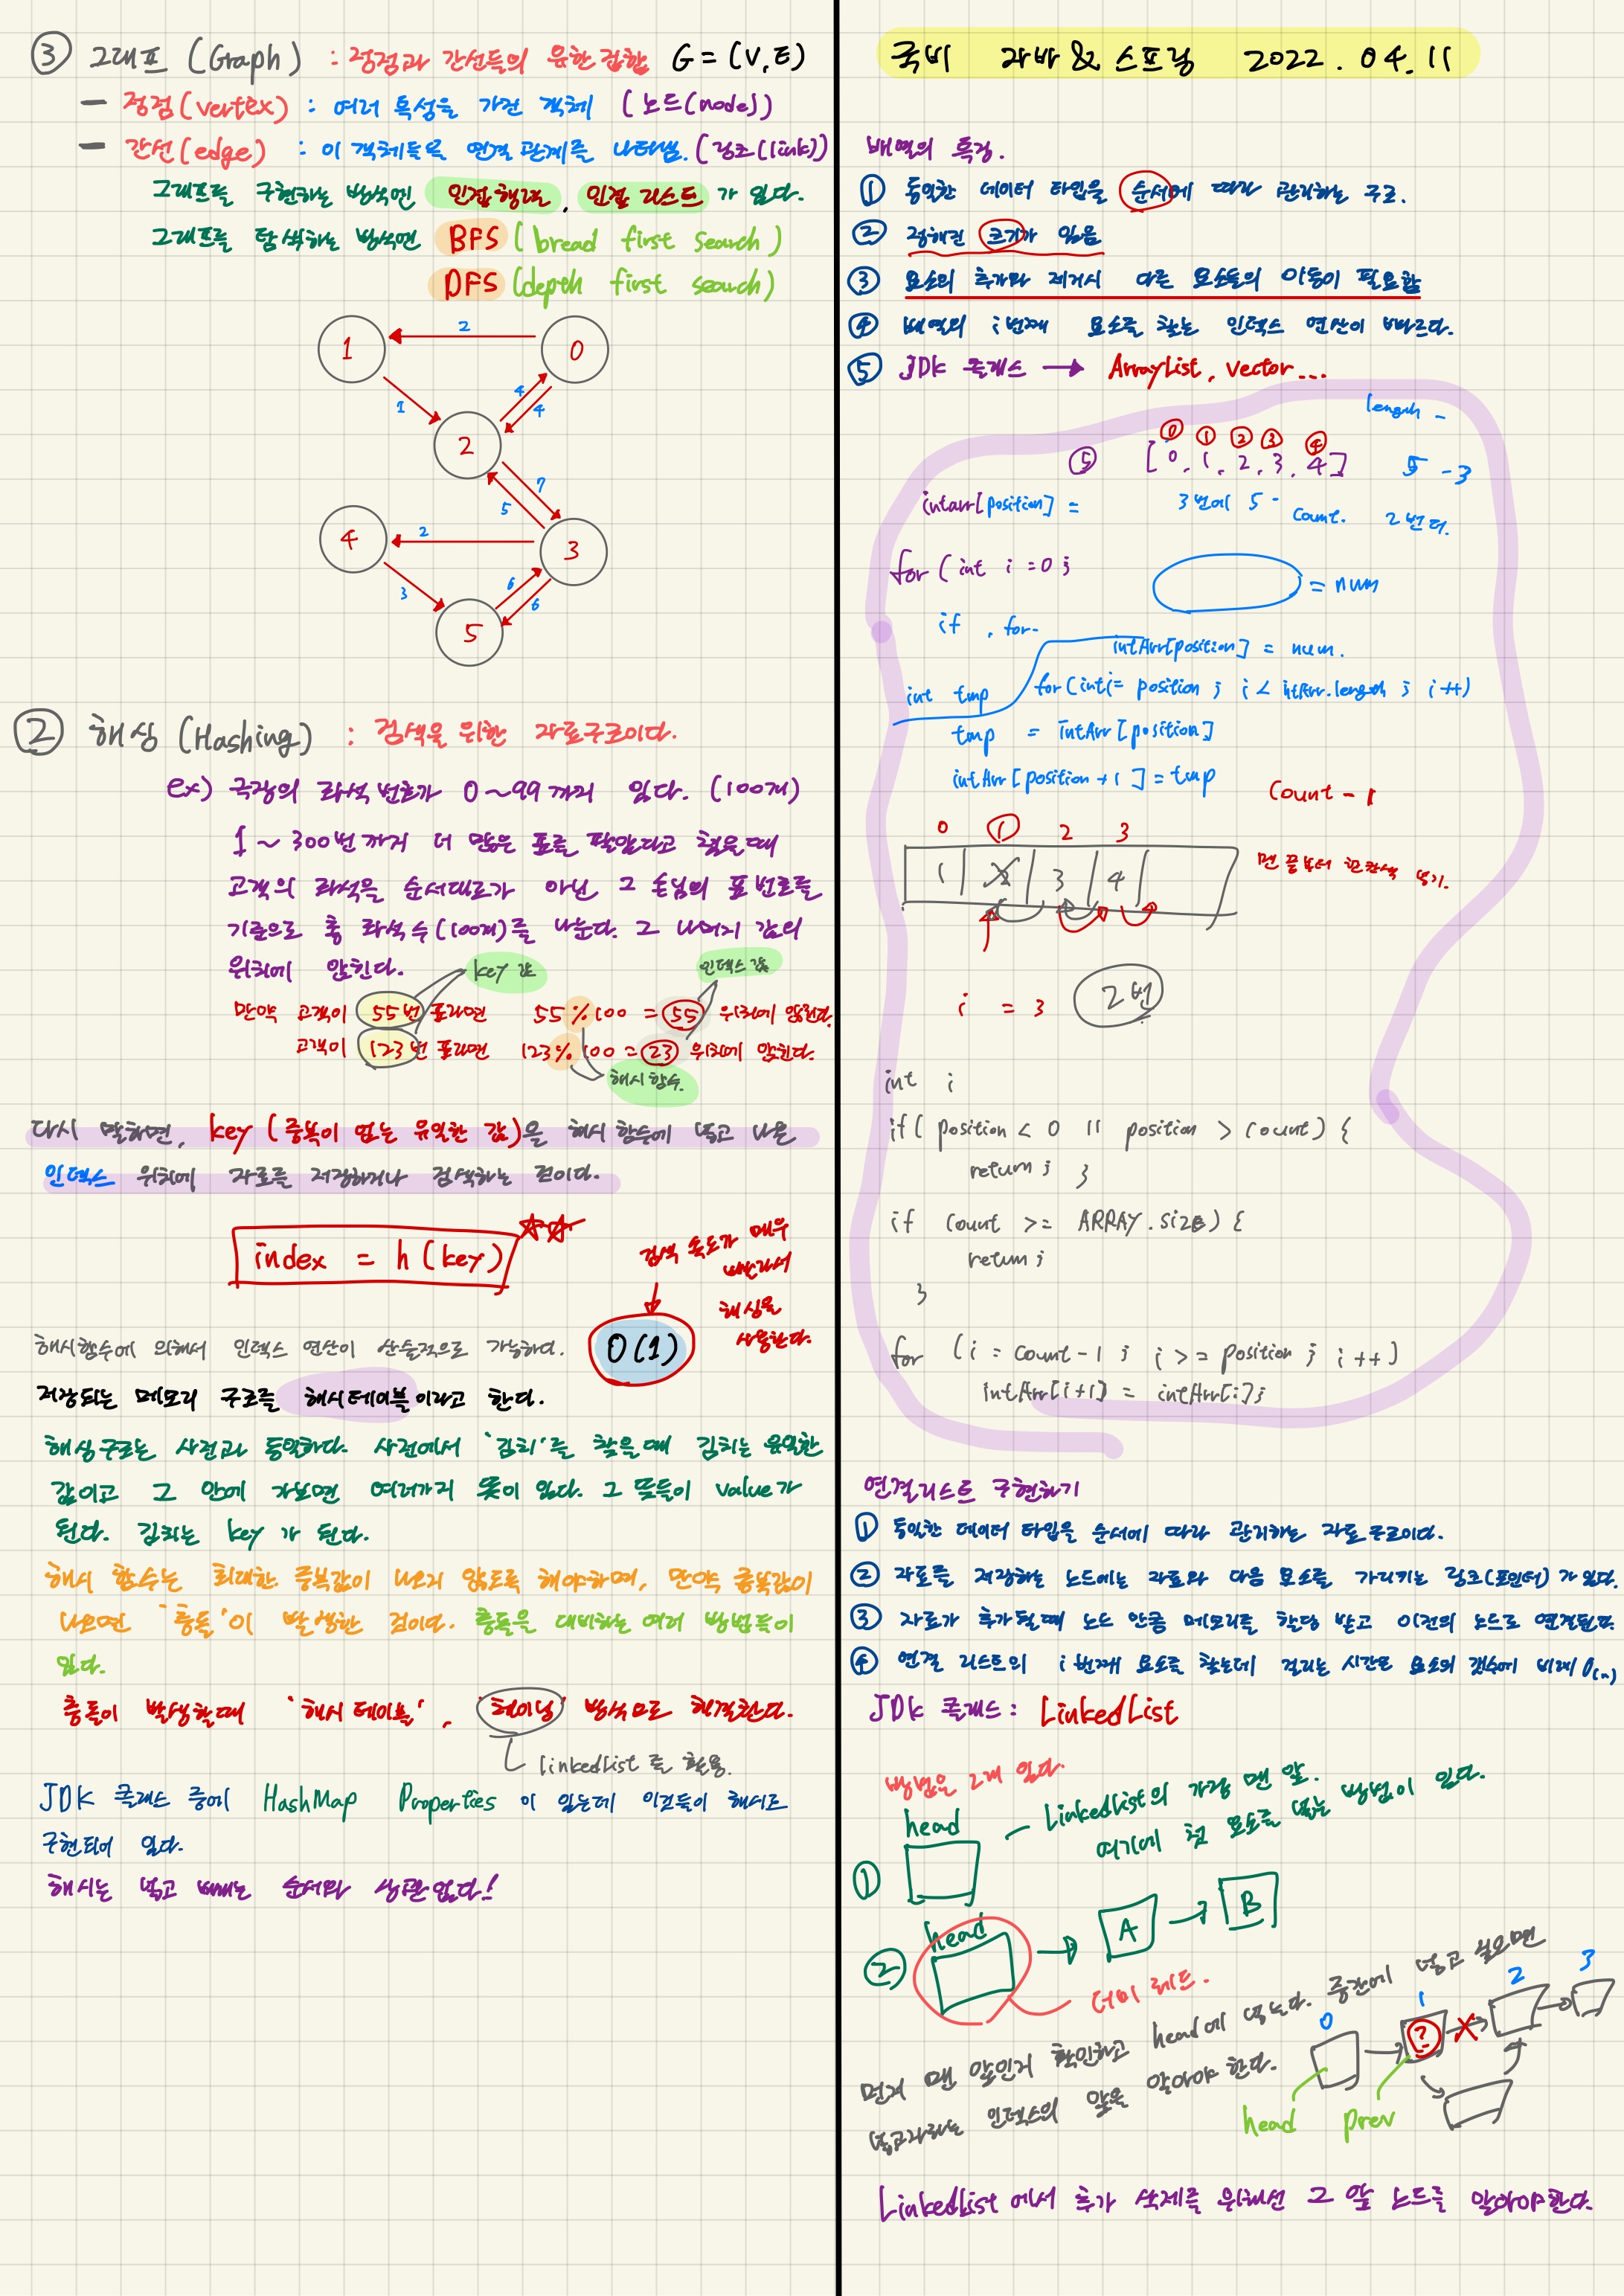 ③ 그래프 (Graph) : 정점과 간선들의 유한 집합 G = (V, E)
- 정점(vertex) : 여러 특성을 가진 객체 (노드(node))
- 간선(edge) : 이 객체들을 연결 관계를 나타냄. (링크(link))
그래프를 구현하는 방식엔 인접 행렬, 인접 리스트 가 있다.
그래프를 탐색하는 방식엔 BFS (bread first search)
DFS (depth first search)
1 2 0
1 4 4
2
7 5
4 2 3
3 6 6
5
② 해싱 (Hashing) : 검색을 위한 자료구조이다.
ex) 극장의 좌석 번호가 0~99 까지 있다. (100개)
1 ~ 300번 까지 더 많은 표를 팔았다고 쳤을 때
고객의 좌석을 순서대로가 아닌 그 손님의 표 번호를
기준으로 총 좌석 수(100개)를 나눈다. 그 나머지 값의
위치에 앉힌다. key 값 인덱스 값
만약 고객이 55번 표라면 55 % 100 = 55 위치에 앉힌다.
고객이 123번 표라면 123 % 100 = 23 위치에 앉힌다.
해시 함수.
다시 말하면, key (중복이 없는 유일한 값)을 해시 함수에 넣고 나온
인덱스 위치에 자료를 저장하거나 검색하는 것이다.
index = h (key)
검색 속도가 매우
빨라서
해싱을
사용한다.
O(1)
해시함수에 의해서 인덱스 연산이 산술적으로 가능하다.
저장되는 메모리 구조를 해시테이블이라고 한다.
해싱구조는 사전과 동일하다. 사전에서 '김치'를 찾을때 김치는 유일한
값이고 그 안에 가보면 여러가지 뜻이 있다. 그 뜻들이 value가
된다. 김치는 key 가 된다.
해시 함수는 최대한 중복값이 나오지 않도록 해야하며, 만약 중복값이
나오면 '충돌'이 발생한 것이다. 충돌을 대비하는 여러 방법들이
있다.
충돌이 발생할때 '해시 테이블', '체이닝' 방식으로 해결한다.
linkedlist 를 활용.
JDK 클래스 중에 HashMap Properties 이 있는데 이것들이 해시로
구현되어 있다.
해시는 넣고 빼는 순서와 상관없다!
국비 자바 & 스프링 2022. 04. 11
배열의 특징.
① 동일한 데이터 타입을 순서에 따라 관리하는 구조.
② 정해진 크기가 있음
③ 요소의 추가와 제거시 다른 요소들의 이동이 필요함
④ 배열의 i번째 요소를 찾는 인덱스 연산이 빠르다.
⑤ JDK 클래스 → ArrayList, Vector...
length -
⓪ ① ② ③ ④
⑤ [0, 1, 2, 3, 4] 5 - 3
intarr[position] = 3번에 5 - count. 2번더.
for (int i = 0 ;
= num
if , for-
intArr[position] = num.
int tmp for (int i = position ; i < intArr.length ; i++)
tmp = intArr [position]
intArr [position + 1] = tmp
Count - 1
0 ① 2 3
1 2 3 4
맨 끝부터 한칸씩 넣기.
i = 3 2번
int i
if( position < 0 || position > count) {
return ; }
if count >= ARRAY.SIZE) {
return ;
}
for (i = count - 1 ; i >= position ; i ++)
intArr[i+1] = intArr[i];
연결리스트 구현하기
① 동일한 데이터 타입을 순서에 따라 관리하는 자료 구조이다.
② 자료를 저장하는 노드에는 자료와 다음 요소를 가리키는 링크(포인터) 가 있다.
③ 자료가 추가될때 노드 만큼 메모리를 할당 받고 이전의 노드로 연결된다.
④ 연결 리스트의 i 번째 요소를 찾는데 걸리는 시간은 요소의 갯수에 비례 O(n)
JDK 클래스 : LinkedList
방법은 2개 있다.
head
LinkedList의 가장 맨 앞.
여기에 첫 요소를 넣는 방법이 있다.
①
② head → A → B
더미 헤드.
먼저 맨 앞인지 확인하고 head에 넣는다. 중간에 넣고 싶으면
넣고자하는 인덱스의 앞을 알아야 한다.
0 1 2 3
?
head prev
LinkedList 에서 추가 삭제를 위해선 그 앞 노드를 알아야한다.